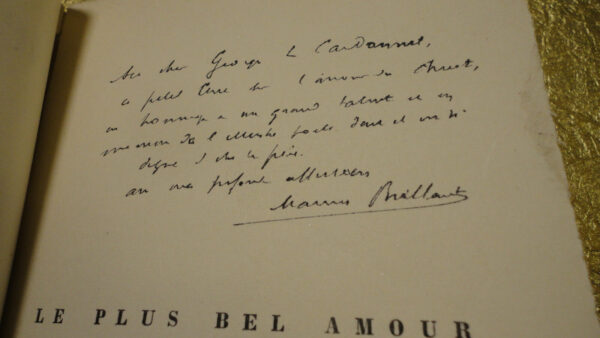 Au cher George le Cardonnel,
ce petit livre sur l'amour du Christ,
en hommage à un grand talent et en
mémoire de l'illustre poète dont il est si
digne d'être le frère.
avec ma profonde affection
Maurice Brillant
LE PLUS BEL AMOUR